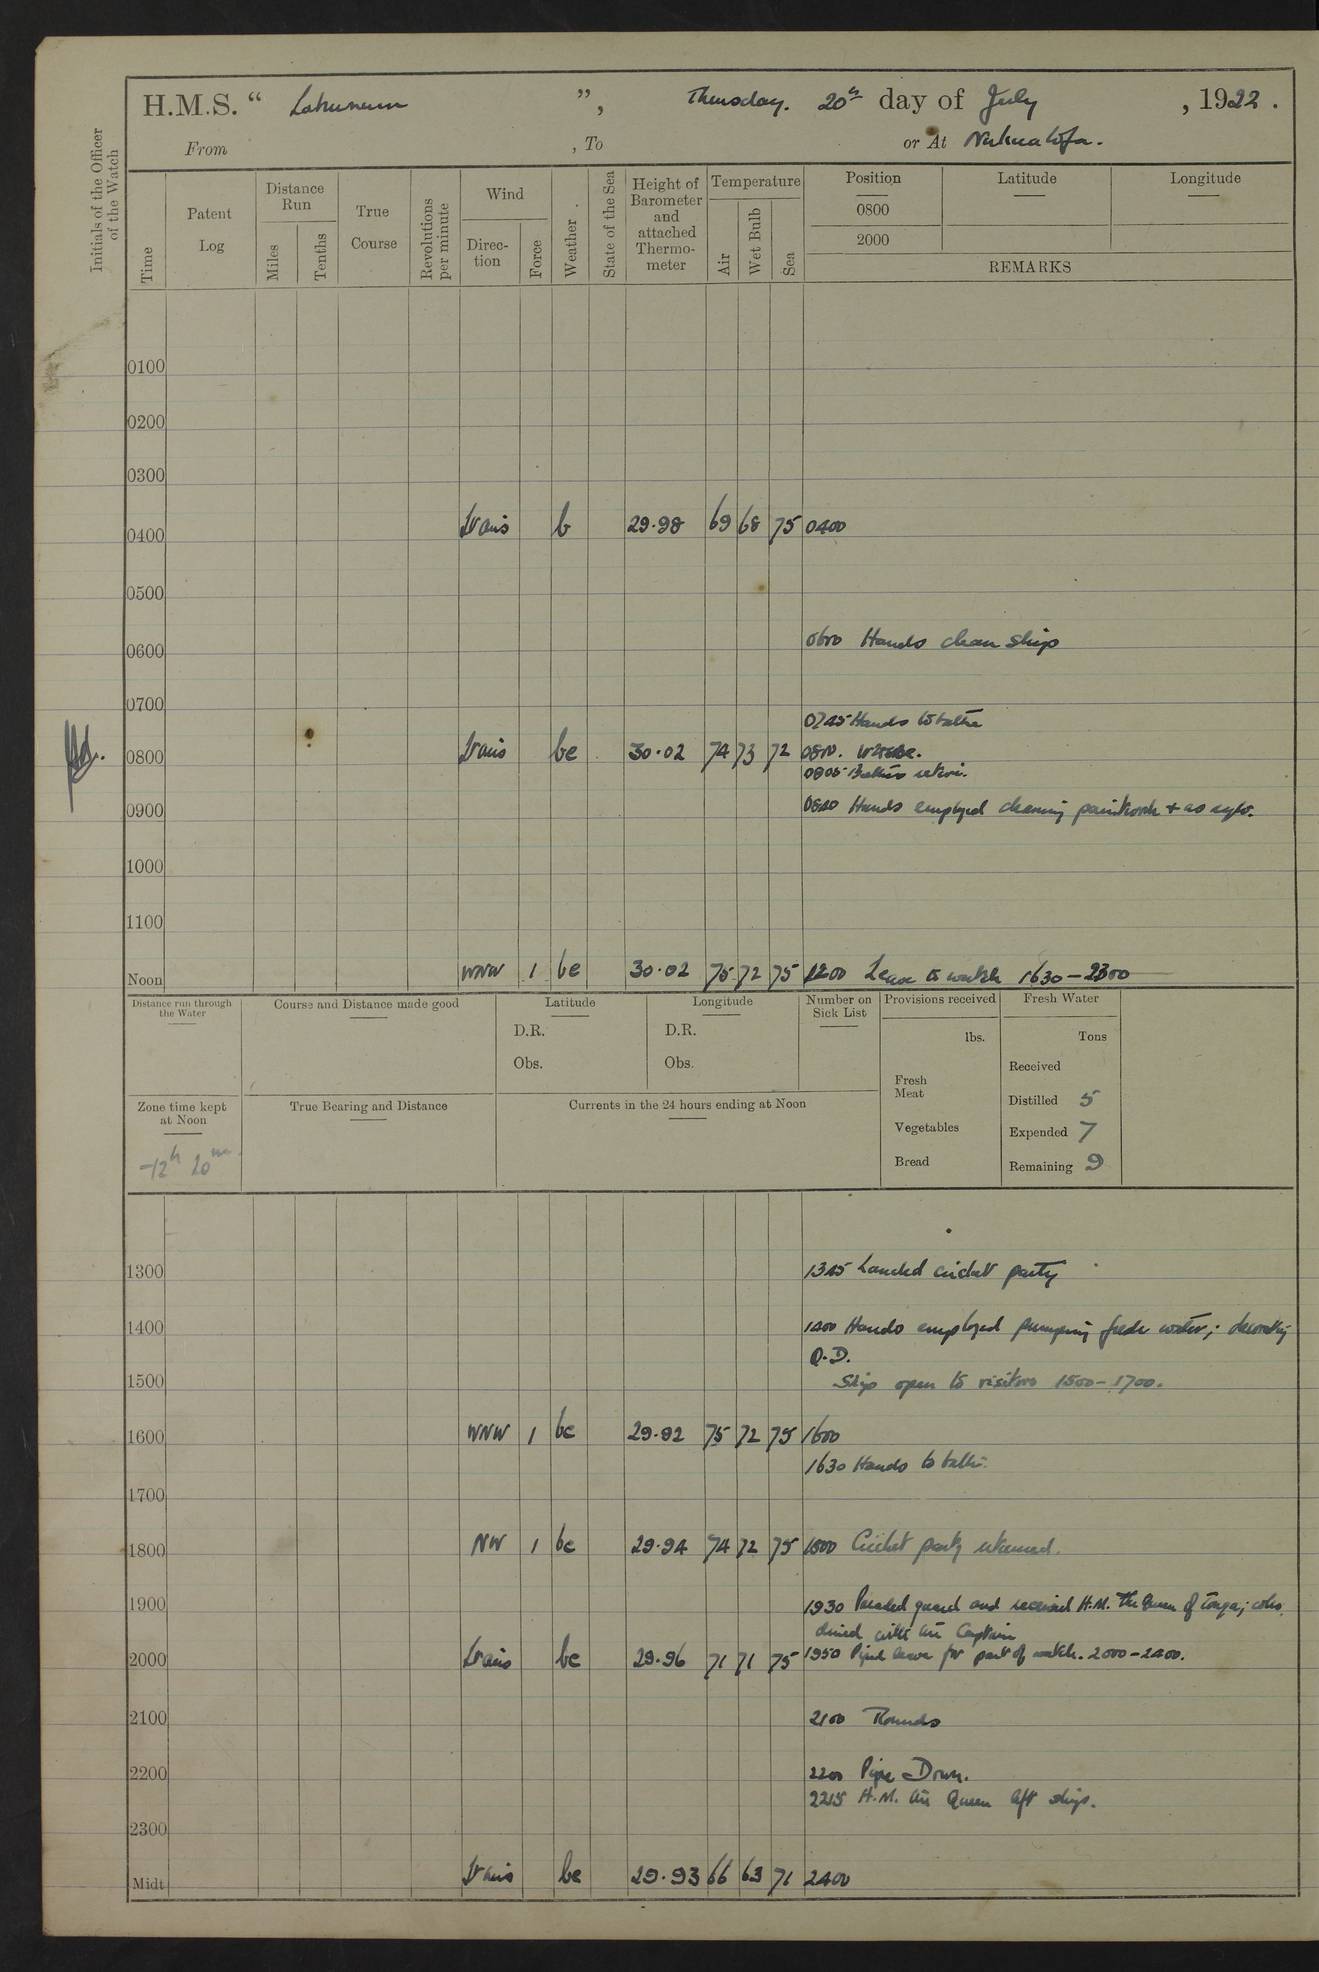 H.M.S. “ Laburnum ”, Thursday. 20th day of July , 1922 .
From , To or At Nukualofa.
Initials of the Officer of the Watch
Time
Patent Log
Distance Run
Miles
Tenths
True Course
Revolutions per minute
Wind
Direc-tion
Force
Weather
State of the Sea
Height of Barometer and attached Thermo-meter
Temperature
Air
Wet Bulb
Sea
Position Latitude Longitude
0800
2000
REMARKS
0100
0200
0300
0400 Lt airs b 29.98 69 68 75 0400
0500
0600 0600 Hands clean ship
0700
0745 Hands to bathe
0800 Lt airs bc 30.02 74 73 72 0800.
0805 Bathers retire.
0900 0840 Hands employed cleaning paintwork + as reqte.
1000
1100
Noon WNW 1 bc 30.02 75 72 75 1200 Leave to watch 1630 – 2300
Distance run through the Water
Course and Distance made good
Latitude
D.R.
Obs.
Longitude
D.R.
Obs.
Number on Sick List
Provisions received
lbs.
Fresh Meat
Vegetables
Bread
Fresh Water
Tons
Received
Distilled 5
Expended 7
Remaining 9
Zone time kept at Noon
-12h 20m.
True Bearing and Distance
Currents in the 24 hours ending at Noon
1300 1345 Landed cricket party
1400 1400 Hands employed pumping fresh water; decorating
Q.D.
1500 Ship open to visitors 1500 – 1700.
1600 WNW 1 bc 29.92 75 72 75 1600
1630 Hands to bathe.
1700
1800 NW 1 bc 29.94 74 72 75 1800 Cricket party returned.
1900 1930 Paraded guard and received H.M. The Queen of Tonga; who
dined with the Captain
2000 Lt airs bc 29.96 71 71 75 1950 Piped leave for part of watch. 2000 – 2400.
2100 2100 Rounds
2200 2200 Pipe Down.
2215 H.M. the Queen left ship.
2300
Midt Lt airs bc 29.93 66 63 71 2400